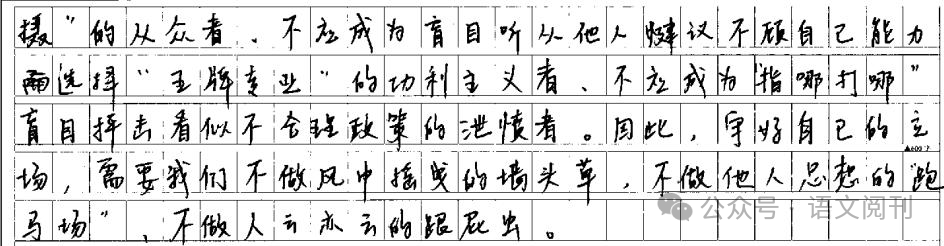 摄”的从众者、不应成为盲目听从他人建议不顾自己能力
而选择“王牌专业”的功利主义者、不应成为“指哪打哪”
盲目抨击看似不合理政策的泄愤者。因此，守好自己的立
▲600字
场，需要我们不做风中摇曳的墙头草，不做他人思想的“跑
马场”、不做人云亦云的跟屁虫。
公众号·语文阅刊